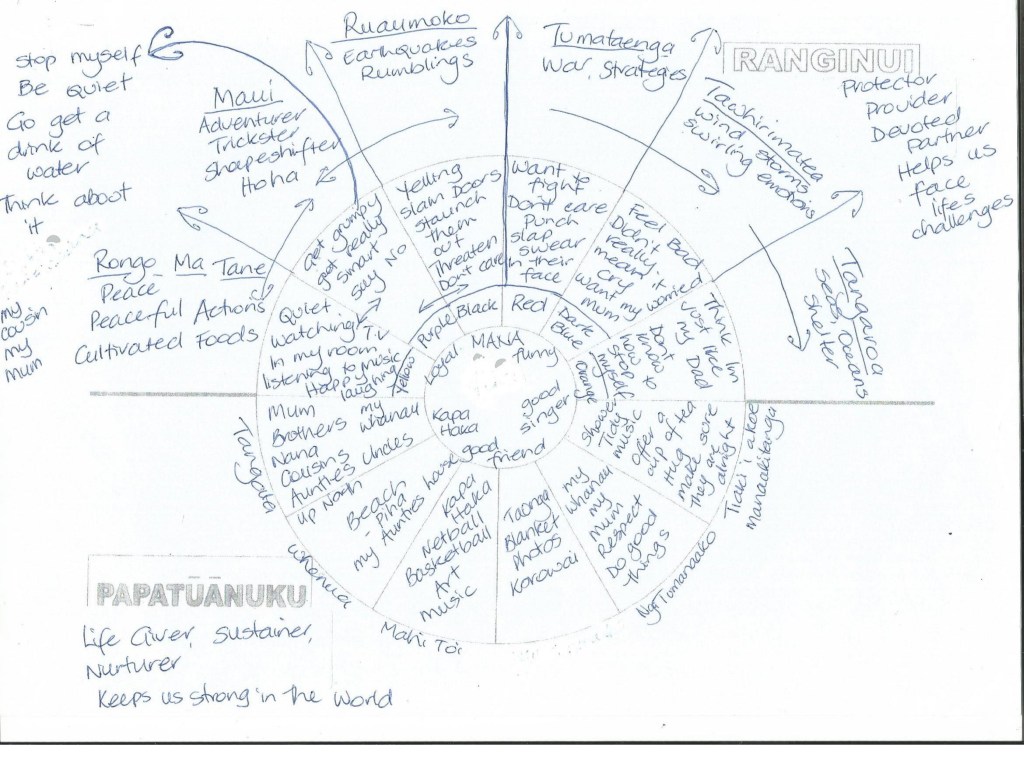 stop myself
Be quiet
Go get a
drink of
water
Think about
it
Maui
Adventurer
Trickster
shapeshifter
Hoha
Ruaumoko
Earthquakes
Rumblings
Tumataenga
War, Strategies
RANGINUI
Protector
Provider
Devoted
partner
Helps us
face
lifes
challenges
Tawhirimatea
wind storms
swirling emotions
Tangaroa
Seas, Oceans
Shelter
Rongo Ma Tane
Peace
Peaceful Actions
Cultivated Foods
my
cousin
my
mum
Get grumpy
get really
smart
say NO
Yelling
slam Doors
staunch
them
out
Threaten
Dont care
want to
fight
Don't care
Punch
slap
swear
In their
face
Feel Bad
Didn't
really
mean it
cry
want my
mum
worried
Think Im
just like
my Dad
Dont
know
how to
stop
myself
Quiet
watching T.V
In my room
listening to music
Happy
laughing
Yellow
Purple
Black
Red
Dark
Blue
Orange
MANA
Loyal
funny
Kapa
Haka
good
singer
good
friend
Mum
my
whanau
Brothers
Nana
Cousins
Aunties Uncles
up Noah
Tangata
Beach
- Piha
my Aunties house
Whenua
Kapa
Haka
Netball
Basketball
Art
music
Mahi Toi
Taonga
Blanket
Photos
Korowai
my
whanau
my
mum
Respect
Do good
things
Nga Tumanaako
shower
Tidy
music
offer a
cup of tea
Hug
make sure
they are
alright
Tiaki i a koe
Manaakitanga
PAPATŪĀNUKU
Life Giver, Sustainer,
Nurturer
Keeps us strong in the world